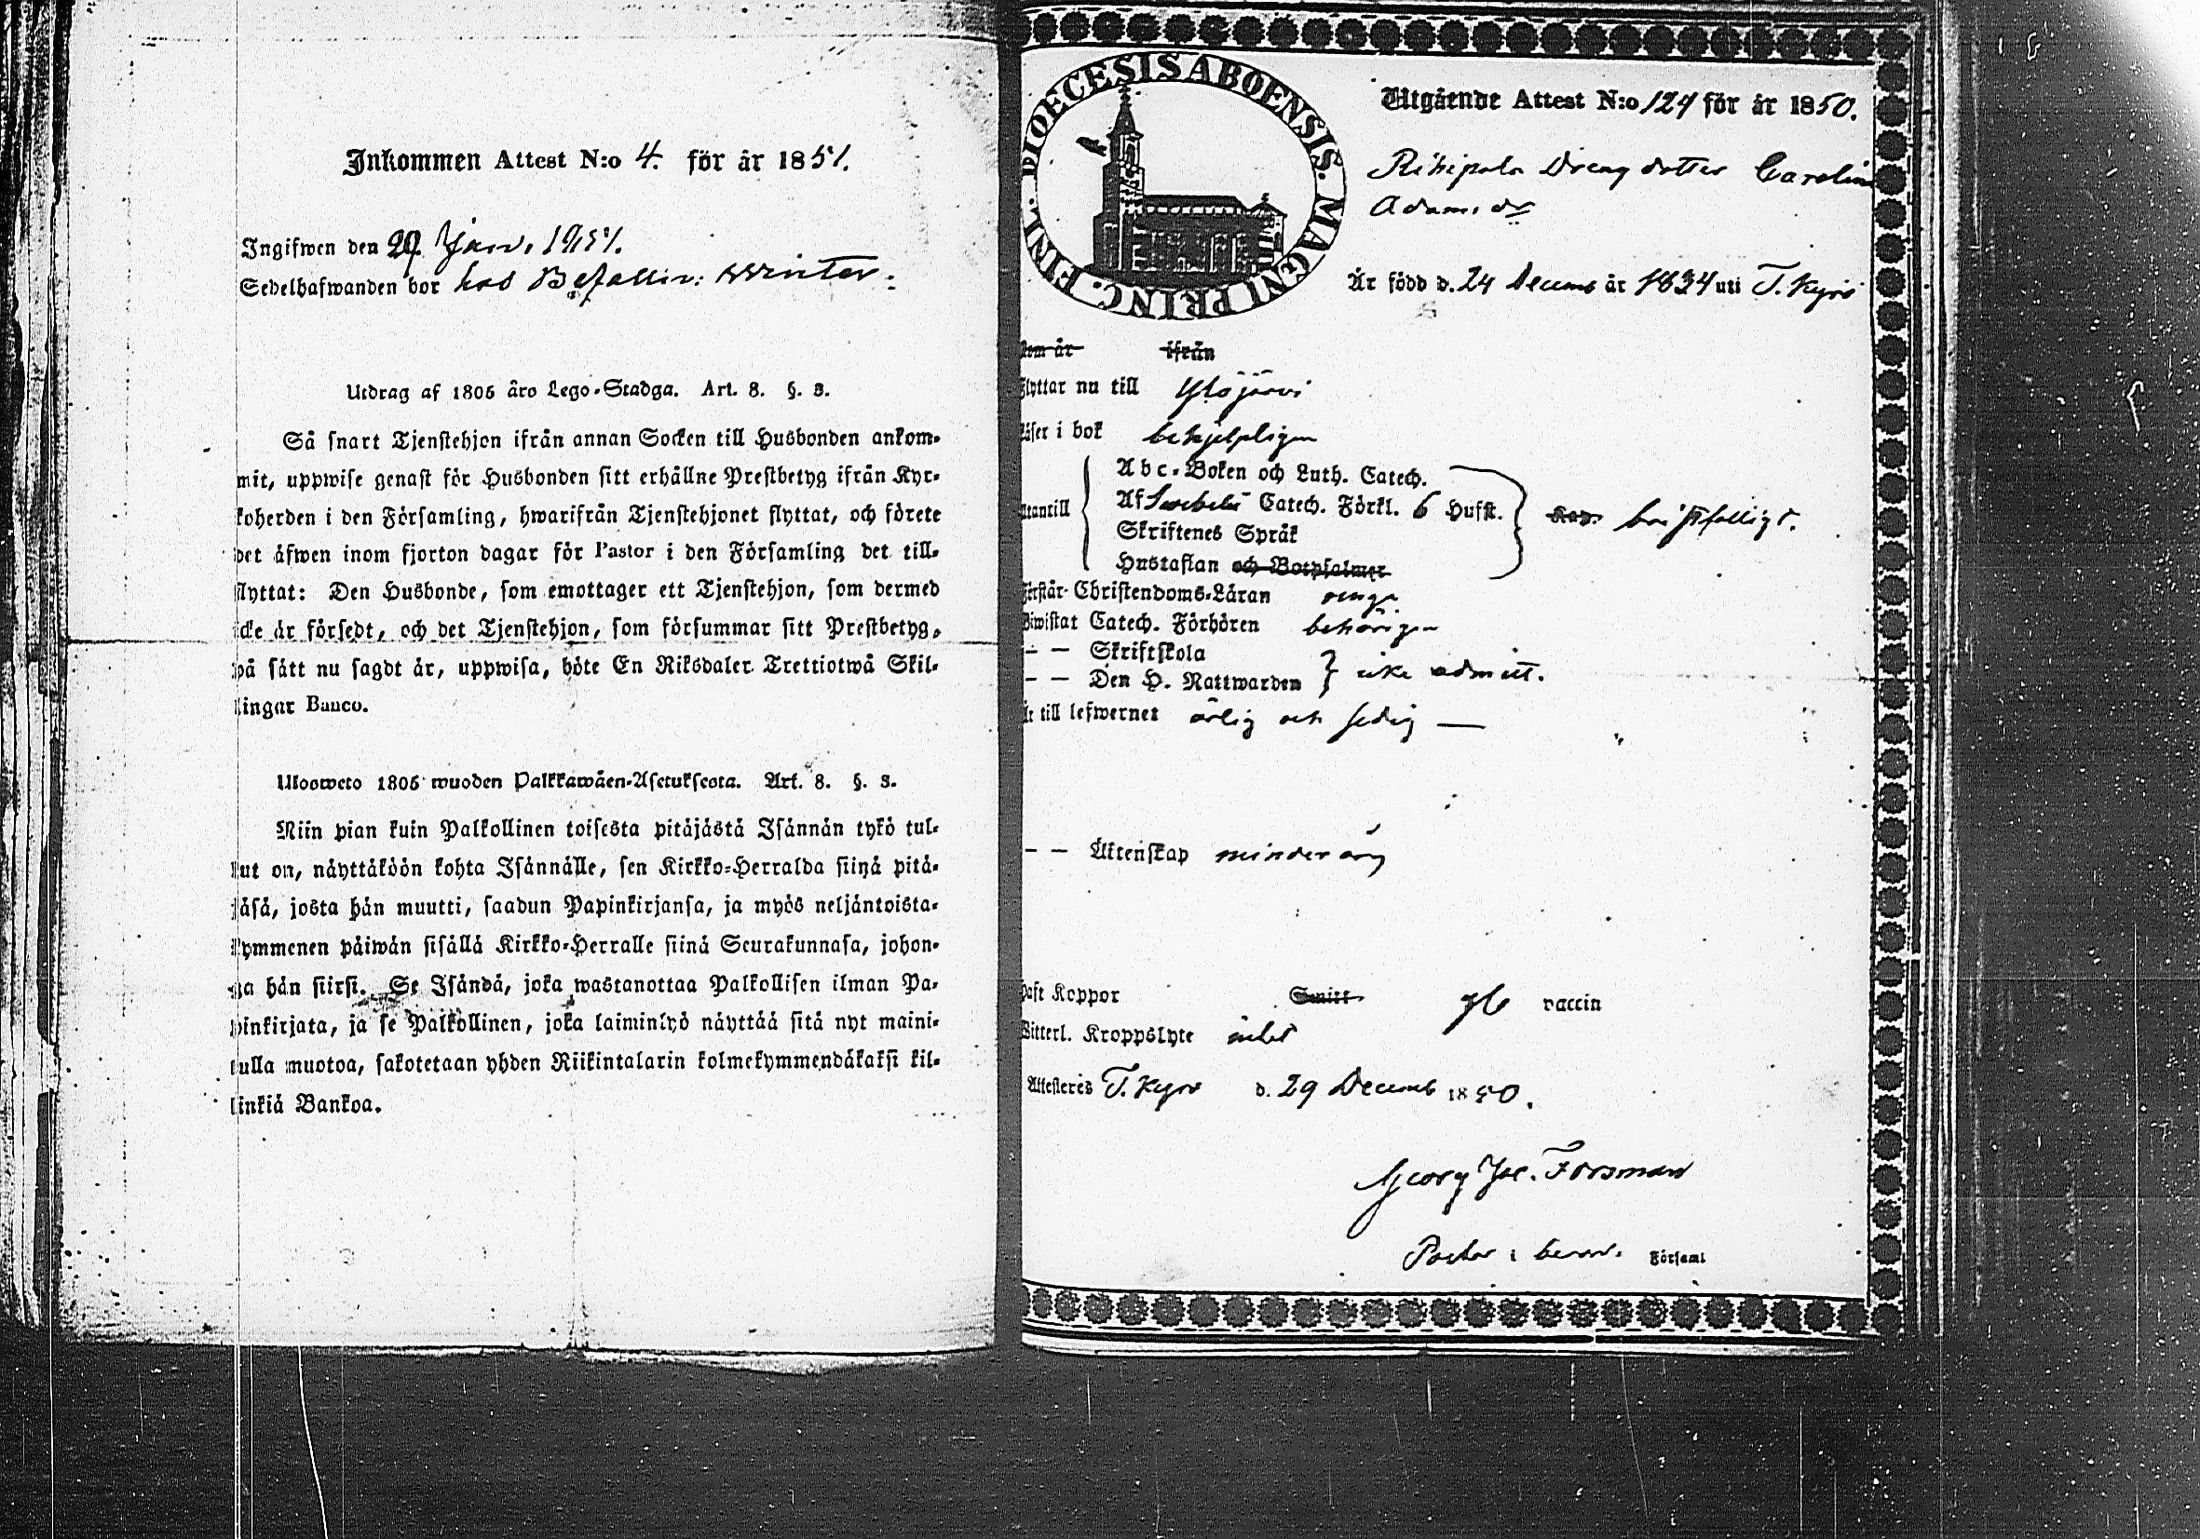 Inkommen Attest N:o 4. för år 1851.
Ingifwen den 29 Jan. 1851.
Sedelhafwanden bor hos Befallm: Winter.
Utdrag af 1805 åro Lego-Stadga. Art. 8. §. 3.
Så snart Tjenstehjon ifrån annan Socken till Husbonden ankom-
mit, uppwise genast för Husbonden sitt erhållne Prestbetyg ifrån Kyr-
koherden i den Församling, hwarifrån Tjenstehjonet flyttat, och förete
det äfwen inom fjorton dagar för Pastor i den Församling det till-
flyttat: Den Husbonde, som emottager ett Tjenstehjon, som dermed
icke är försedt, och det Tjenstehjon, som försummar sitt Prestbetyg,
på sätt nu sagdt är, uppwisa, böte En Riksdaler Trettiotwå Skil-
lingar Banco.
Uloosweto 1805 wuoden Palkkawäen-Asetuksesta. Art. 8. §. 3.
Niin pian kuin Palkollinen toisesta pitäjästä Isännän tykö tul-
lut on, näyttäköön kohta Isännälle, sen Kirkko-Herralda siinä pitä-
jäsä, josta hän muutti, saadun Papinkirjansa, ja myös neljäntoista-
kymmenen päiwän sisällä Kirkko-Herralle siinä Seurakunnasa, johon-
ga hän siirsi. Se Isändä, joka wastanottaa Palkollisen ilman Pa-
pinkirjata, ja se Palkollinen, joka laiminlyö näyttää sitä nyt maini-
tulla muotoa, sakotetaan yhden Riikintalarin kolmekymmendäkaksi kil-
linkiä Bankoa.
DIOECESIS ABOENSIS. MAGNI PRINC. FINL.
Utgående Attest N:o 124 för år 1850.
Drengdotter Carolina
Adamsdr
Är född d. 24 Decemb år 1834 uti T. Kyro
kom år ifrån
Flyttar nu till Ylöjärvi
Läser i bok behjelpligen
Abc-Boken och Luth. Catech.
Utantill Af Swebelii Catech. Förkl. 6 Hufst. bristfälligt.
Skriftenes Språk
Hustaflan och Botpsalmer
Förstår Christendoms-Läran ringa
Biwistat Catech. Förhören behörigen
— — Skriftskola
— — Den H. Nattwarden } icke admitt.
Är till lefwernet ärlig och sedig —
— — Äktenskap minderårig
Haft Koppor Smitt vaccin
Witterl. Kroppslyte intet
Attesteres T. Kyro d. 29 Decemb 1850.
Georg Jac. Forsman
Pastor i bem. Församl